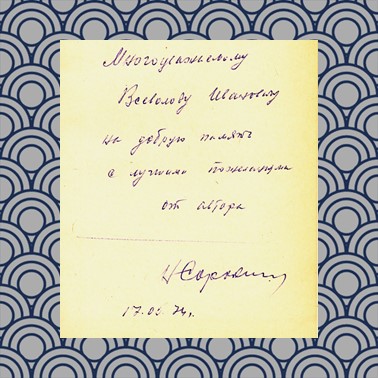 Многоуважаемому
Всеволоду Ивановичу
на добрую память
с лучшими пожеланиями
от автора
НСорокин
17.05.74г.